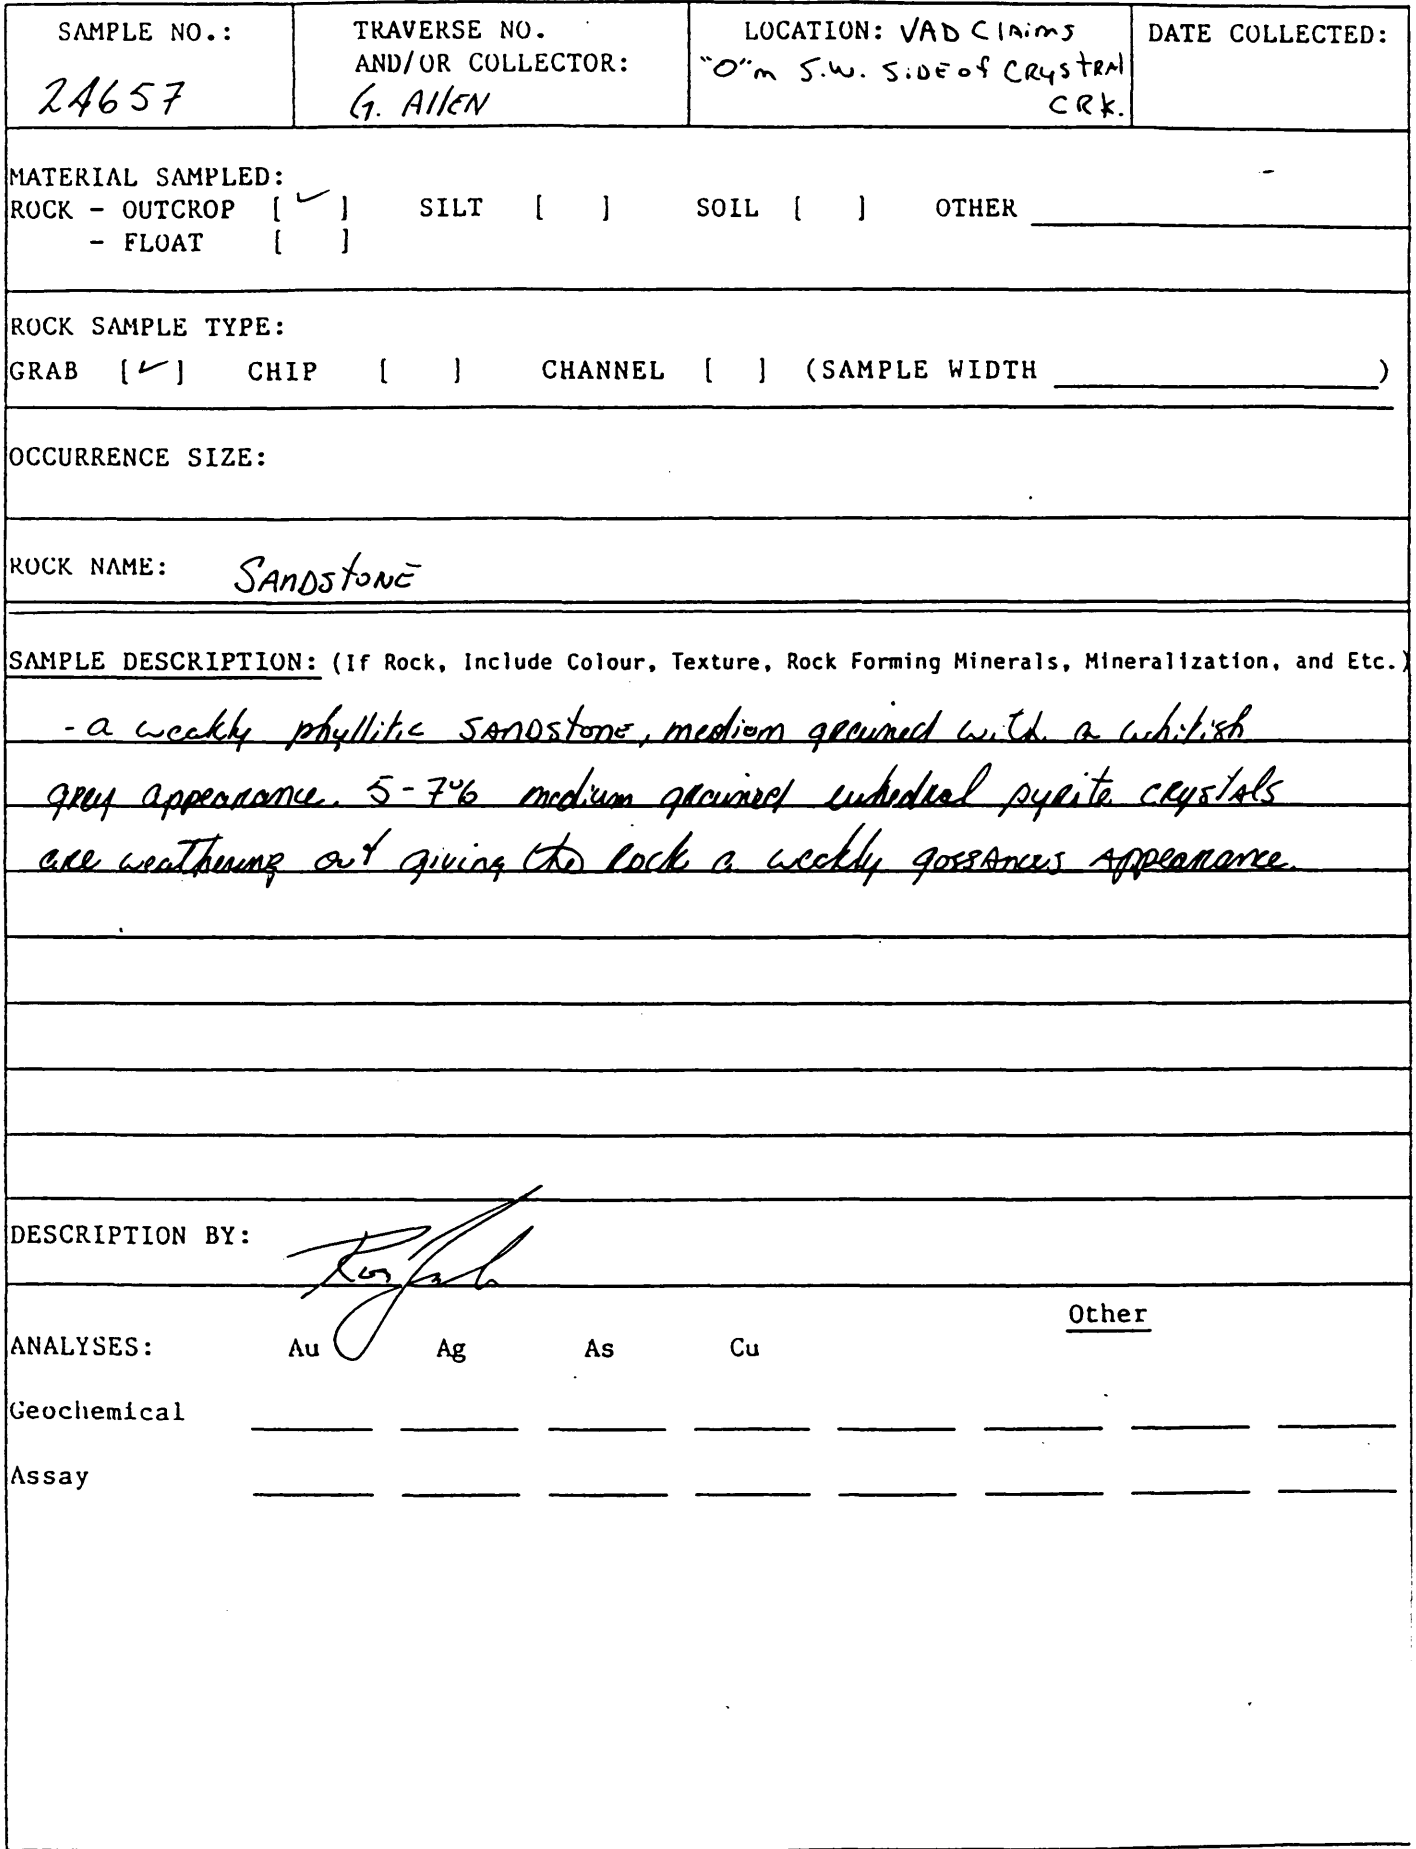 SAMPLE NO.:
24657
TRAVERSE NO.
AND/OR COLLECTOR:
G. AllEN
LOCATION: VAD Claims
"O"m S.W. SiDE of CRYSTAL
CRK.
DATE COLLECTED:
MATERIAL SAMPLED:
ROCK - OUTCROP [ ✓ ] SILT [ ] SOIL [ ] OTHER
- FLOAT [ ]
ROCK SAMPLE TYPE:
GRAB [✓] CHIP [ ] CHANNEL [ ] (SAMPLE WIDTH )
OCCURRENCE SIZE:
ROCK NAME: SANDStONE
SAMPLE DESCRIPTION: (If Rock, Include Colour, Texture, Rock Forming Minerals, Mineralization, and Etc.)
- a weakly phyllitic SANDStone, medium grained with a whitish
grey appearance. 5-7% medium grained euhedral pyrite crystals
are weathering out giving the rock a weakly gossanous appearance.
DESCRIPTION BY:
Other
ANALYSES: Au Ag As Cu
Geochemical
Assay